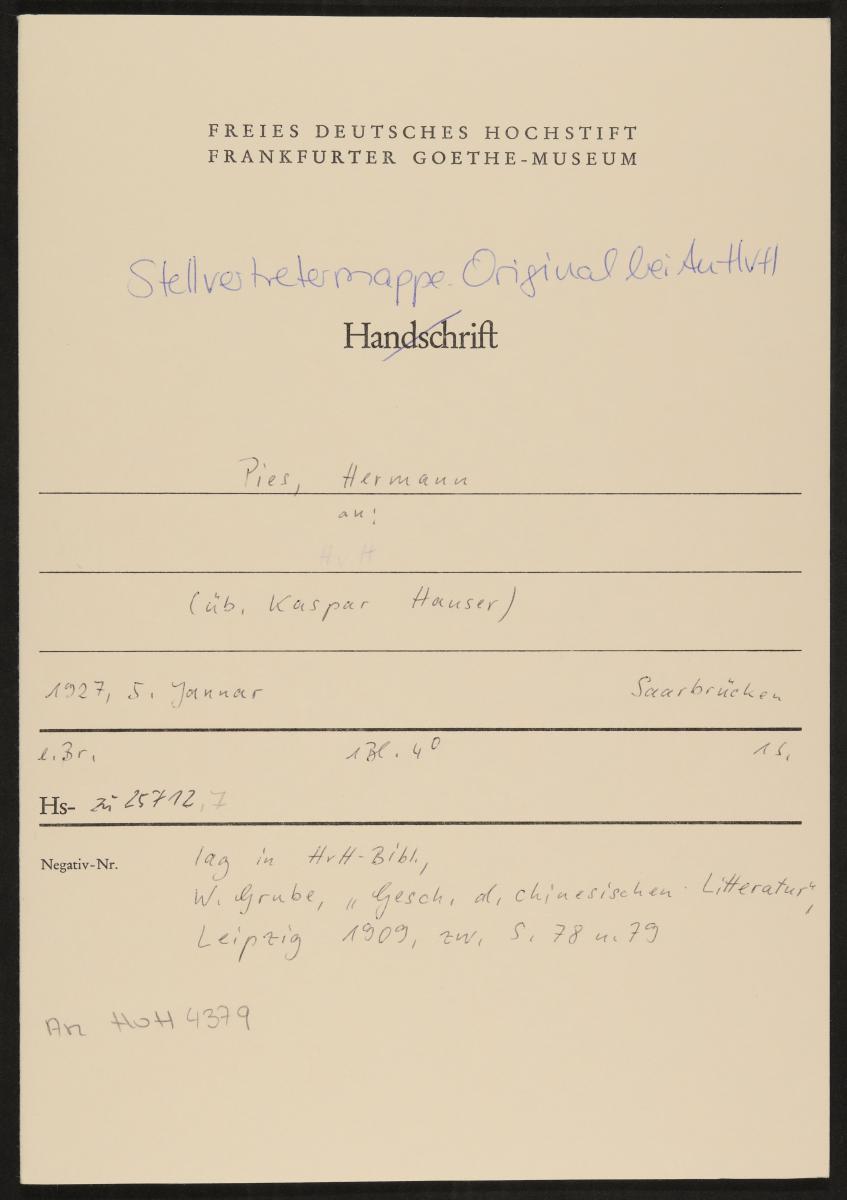 FREIES DEUTSCHES HOCHSTIFT
FRANKFURTER GOETHE-MUSEUM
Stellvertretermappe. Original bei An HvH
Handschrift
Pies, Hermann
an:
HvH
(üb. Kaspar Hauser)
1927, 5. Januar Saarbrücken
e. Br. 1 Bl. 4° 1 S.
Hs- zu 25712,7
Negativ-Nr. lag in HvH-Bibl.,
W. Grube, „Gesch. d. chinesischen Litteratur",
Leipzig 1909, zw. S. 78 u. 79
An HvH 4379